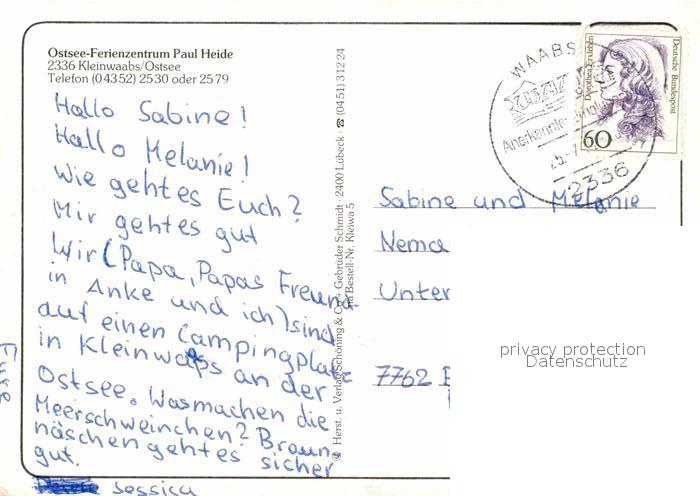 Ostsee-Ferienzentrum Paul Heide
2336 Kleinwaabs/Ostsee
Telefon (04352) 2530 oder 2579
Hallo Sabine!
Hallo Melanie!
Wie gehtes Euch?
Mir gehtes gut
Wir (Papa, Papas Freund-
in Anke und ich) sind
auf einen Campingplatz
in Kleinwaps an der
Ostsee. Wasmachen die
Meerschweinchen? Braun-
näschen gehtes sicher
gut.
Jessica
Eure
Herst. u. Verlag Schöning & Co + Gebrüder Schmidt · 2400 Lübeck · ☎ (0451) 31224
Bestell-Nr. Kleiwa 5
WAABS
Anerkannter
2336
Dorothea Erxleben
Deutsche Bundespost
60
Sabine und Melanie
Nema
Unter
7762
privacy protection
Datenschutz